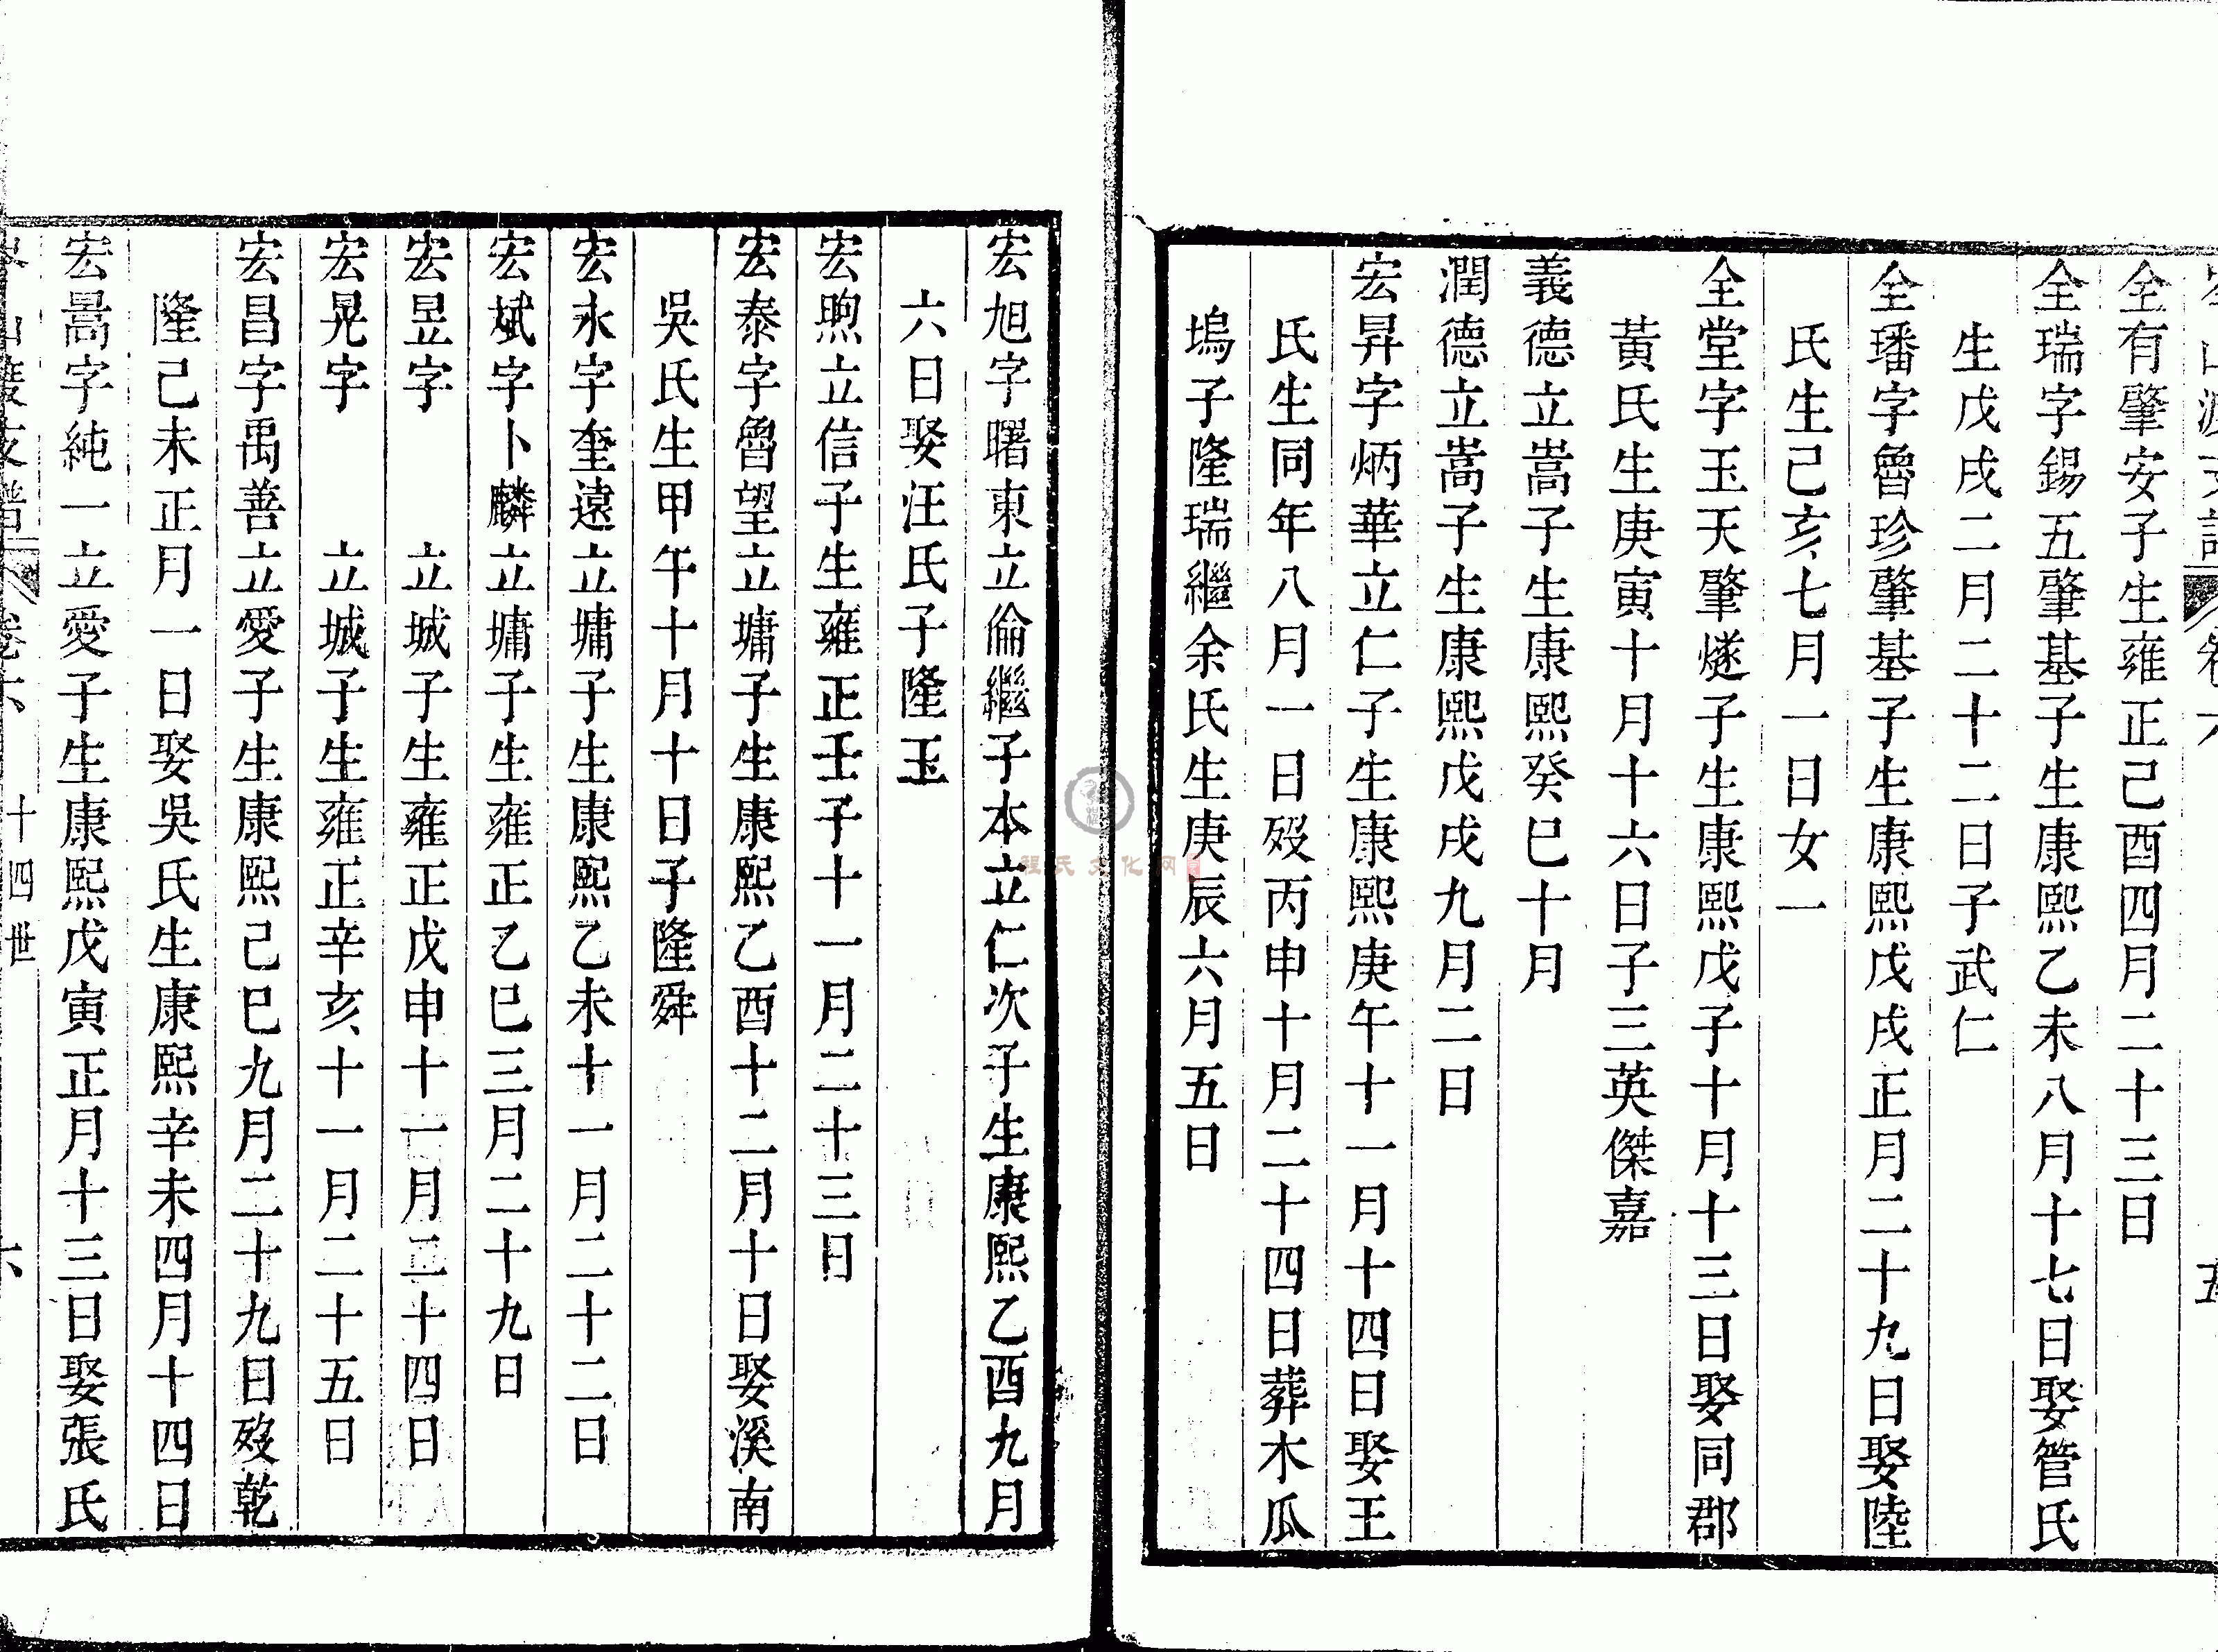 卷六 五
全有肇安子生雍正己酉四月二十三日
全瑞字錫五肇基子生康熙乙未八月十七日娶管氏
生戊戌二月二十二日子武仁
全璠字魯珍肇基子生康熙戊戌正月二十九日娶陸
氏生己亥七月一日女一
全堂字玉天肇燧子生康熙戊子十月十三日娶同郡
黃氏生庚寅十月十六日子三英傑嘉
義德立嵩子生康熙癸巳十月
潤德立嵩子生康熙戊戌九月二日
宏昇字炳華立仁子生康熙庚午十一月十四日娶王
氏生同年八月一日歿丙申十月二十四日葬木瓜
塢子隆瑞繼余氏生庚辰六月五日
宏旭字曙東立倫繼子本立仁次子生康熙乙酉九月
六日娶汪氏子隆玉
宏煦立信子生雍正壬子十一月二十三日
宏泰字魯望立墉子生康熙乙酉十二月十日娶溪南
吳氏生甲午十月十日子隆舜
宏永字奎遠立墉子生康熙乙未十一月二十二日
宏斌字卜麟立墉子生雍正乙巳三月二十九日
宏昱字 立城子生雍正戊申十一月二十四日
宏晃字 立城子生雍正辛亥十一月二十五日
宏昌字禹善立愛子生康熙己巳九月二十九日歿乾
隆己未正月一日娶吳氏生康熙辛未四月十四日
宏暠字純一立愛子生康熙戊寅正月十三日娶張氏
山渡支譜 卷六 十四世 六
程氏文化网